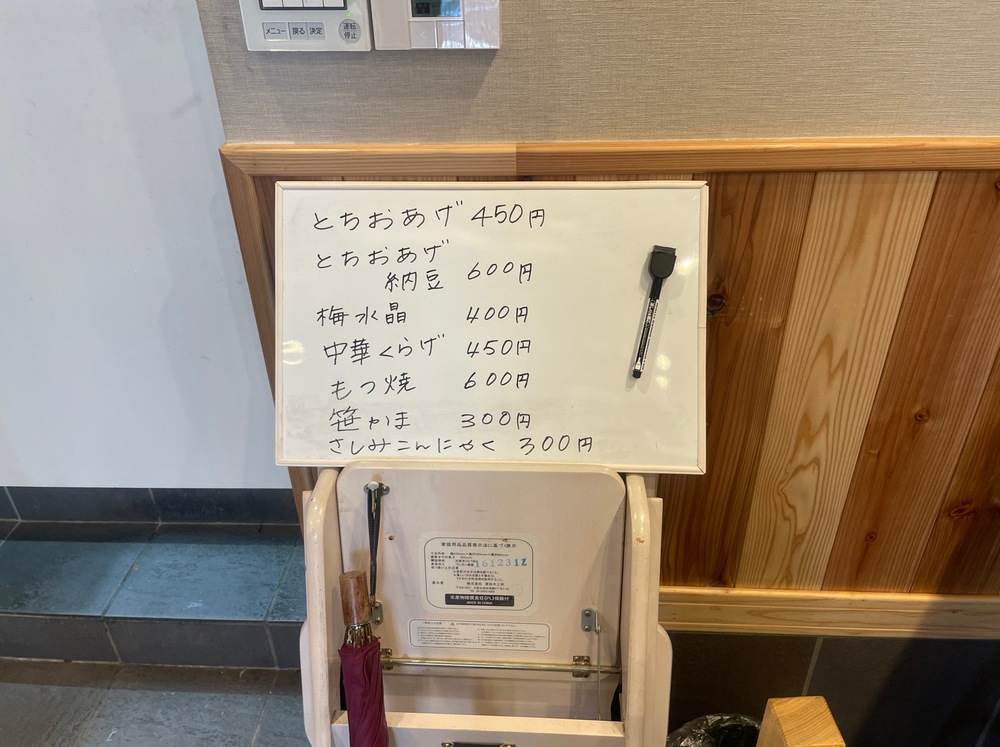 メニュー 戻る 決定
運転
停止
とちおあげ 450円
とちおあげ
納豆 600円
梅水晶 400円
中華くらげ 450円
もつ焼 600円
笹かま 300円
さしみこんにゃく 300円
家庭用品品質表示法に基づく表示
161231Z
生産物賠償責任(PL)保険付
MADE IN CHINA